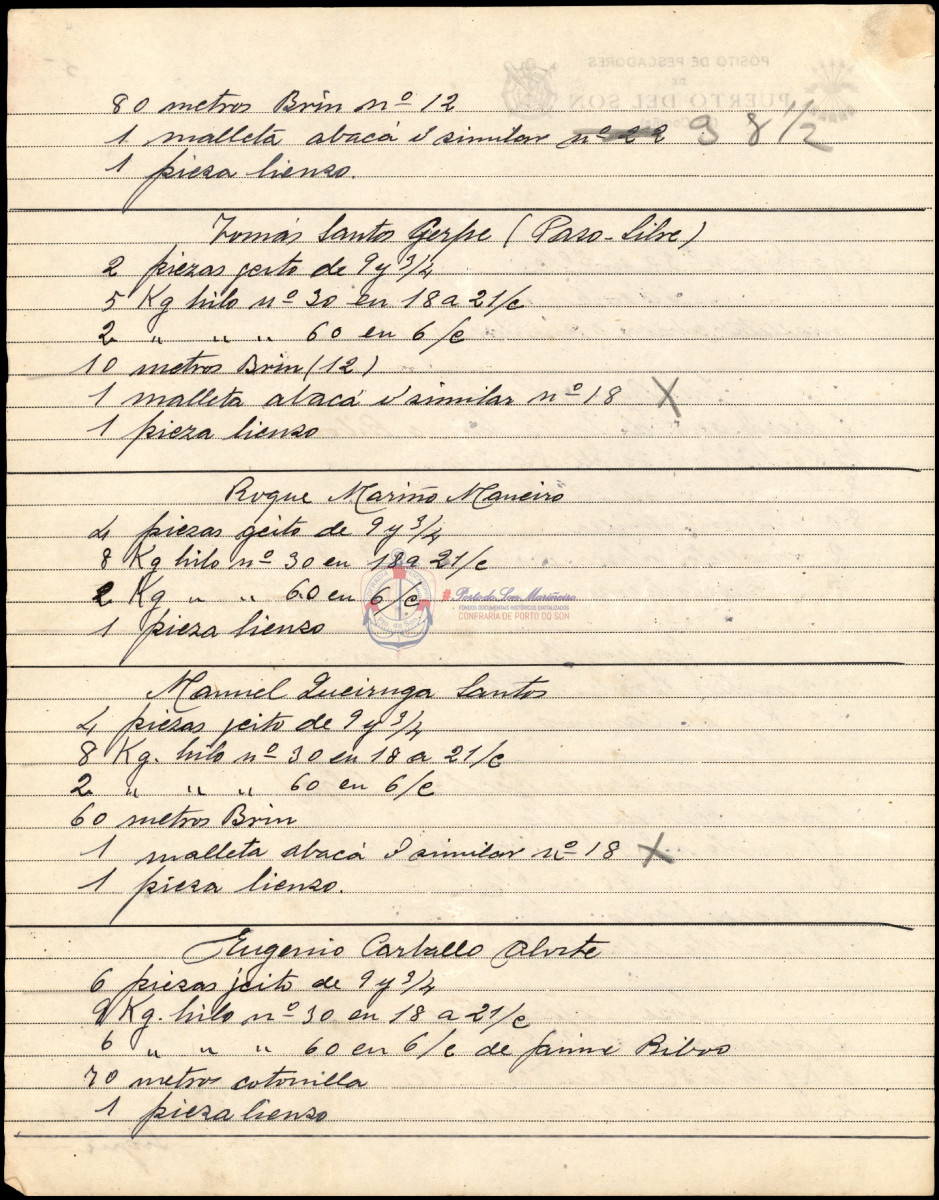 80 metros Brin nº 12
1 malleta abacá ó similar nº 22 9 8 1/2
1 pieza lienzo.
Tomás Santos Gerpe (Paso-Silve)
2 piezas jeito de 9 y 3/4
5 Kg hilo nº 30 en 18 a 21/c
2 " " " 60 en 6/c
10 metros Brin (12)
1 malleta abacá ó similar nº 18 X
1 pieza lienzo
Roque Mariño Maneiro
4 piezas jeito de 9 y 3/4
8 Kg hilo nº 30 en 18 a 21/c
2 Kg " " 60 en 6/c
1 pieza lienzo
Manuel Queiruga Santos
4 piezas jeito de 9 y 3/4
8 Kg. hilo nº 30 en 18 a 21/c
2 " " " 60 en 6/c
60 metros Brin
1 malleta abacá ó similar nº 18 X
1 pieza lienzo.
Eugenio Carballo
6 piezas jeito de 9 y 3/4
9 Kg. hilo nº 30 en 18 a 21/c
6 " " " 60 en 6/c de Jaime Ribas
70 metros cotonilla
1 pieza lienzo
POSITO DE PESCADORES
DE
PUERTO DEL SON
# Porto do Son Mariñeiro
FONDOS DOCUMENTAIS HISTÓRICOS DIXITALIZADOS
CONFRARÍA DE PORTO DO SON